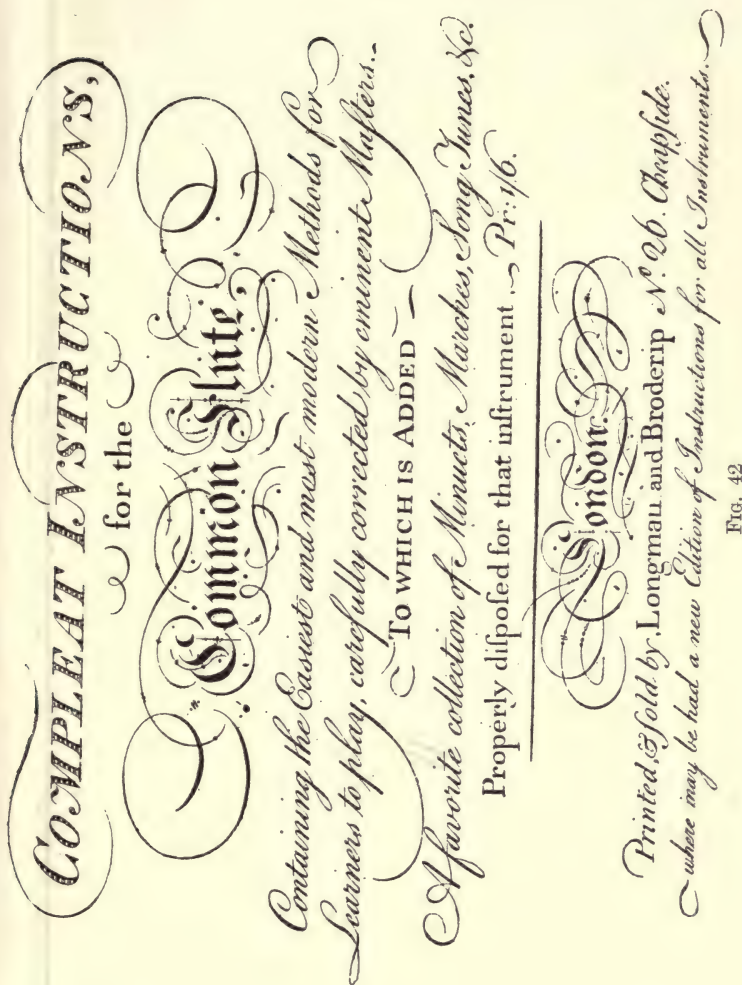 COMPLEAT INSTRUCTIONS,
for the
Common Flute,
Containing the Easiest and most modern Methods for
Learners to play, carefully corrected by eminent Maſters.
TO WHICH IS ADDED
A favorite collection of Minuets, Marches, Song Tunes, &c.
Properly diſpoſed for that inſtrument. Pr: 1/6.
London.
Printed & ſold by Longman and Broderip No. 26. Cheapſide.
where may be had a new Edition of Instructions for all Instruments.
FIG. 42